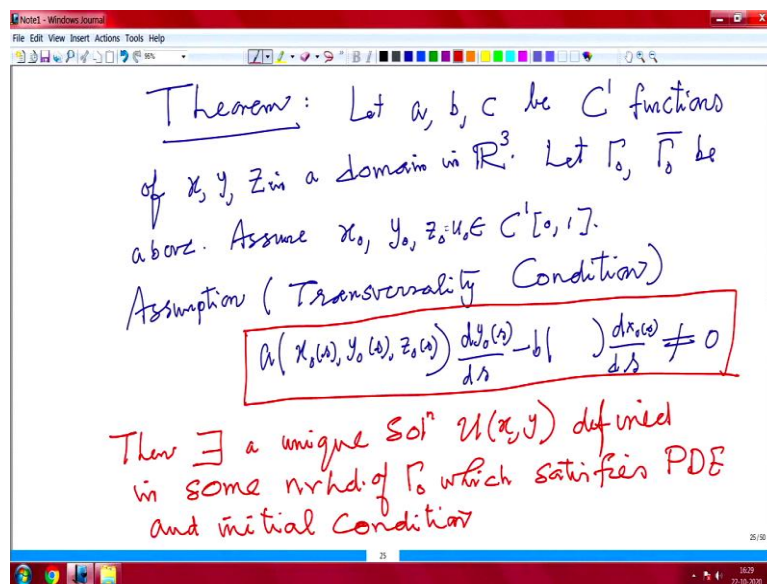 Note1 - Windows Journal
File Edit View Insert Actions Tools Help
96%
B I
Theorem : Let a, b, c be C¹ functions
of x, y, z in a domain in ℝ³. Let Γ₀, Γ̄₀ be
above. Assume x₀, y₀, z₀=u₀ ∈ C¹[0, 1].
Assumption ( Transversality Condition)
a( x₀(s), y₀(s), z₀(s)) dy₀(s)/ds - b( ) dx₀(s)/ds ≠ 0
Then ∃ a unique Solⁿ u(x, y) defined
in some nrhd. of Γ₀ which satisfies PDE
and initial Condition
25/50
25
16:29
22-10-2020